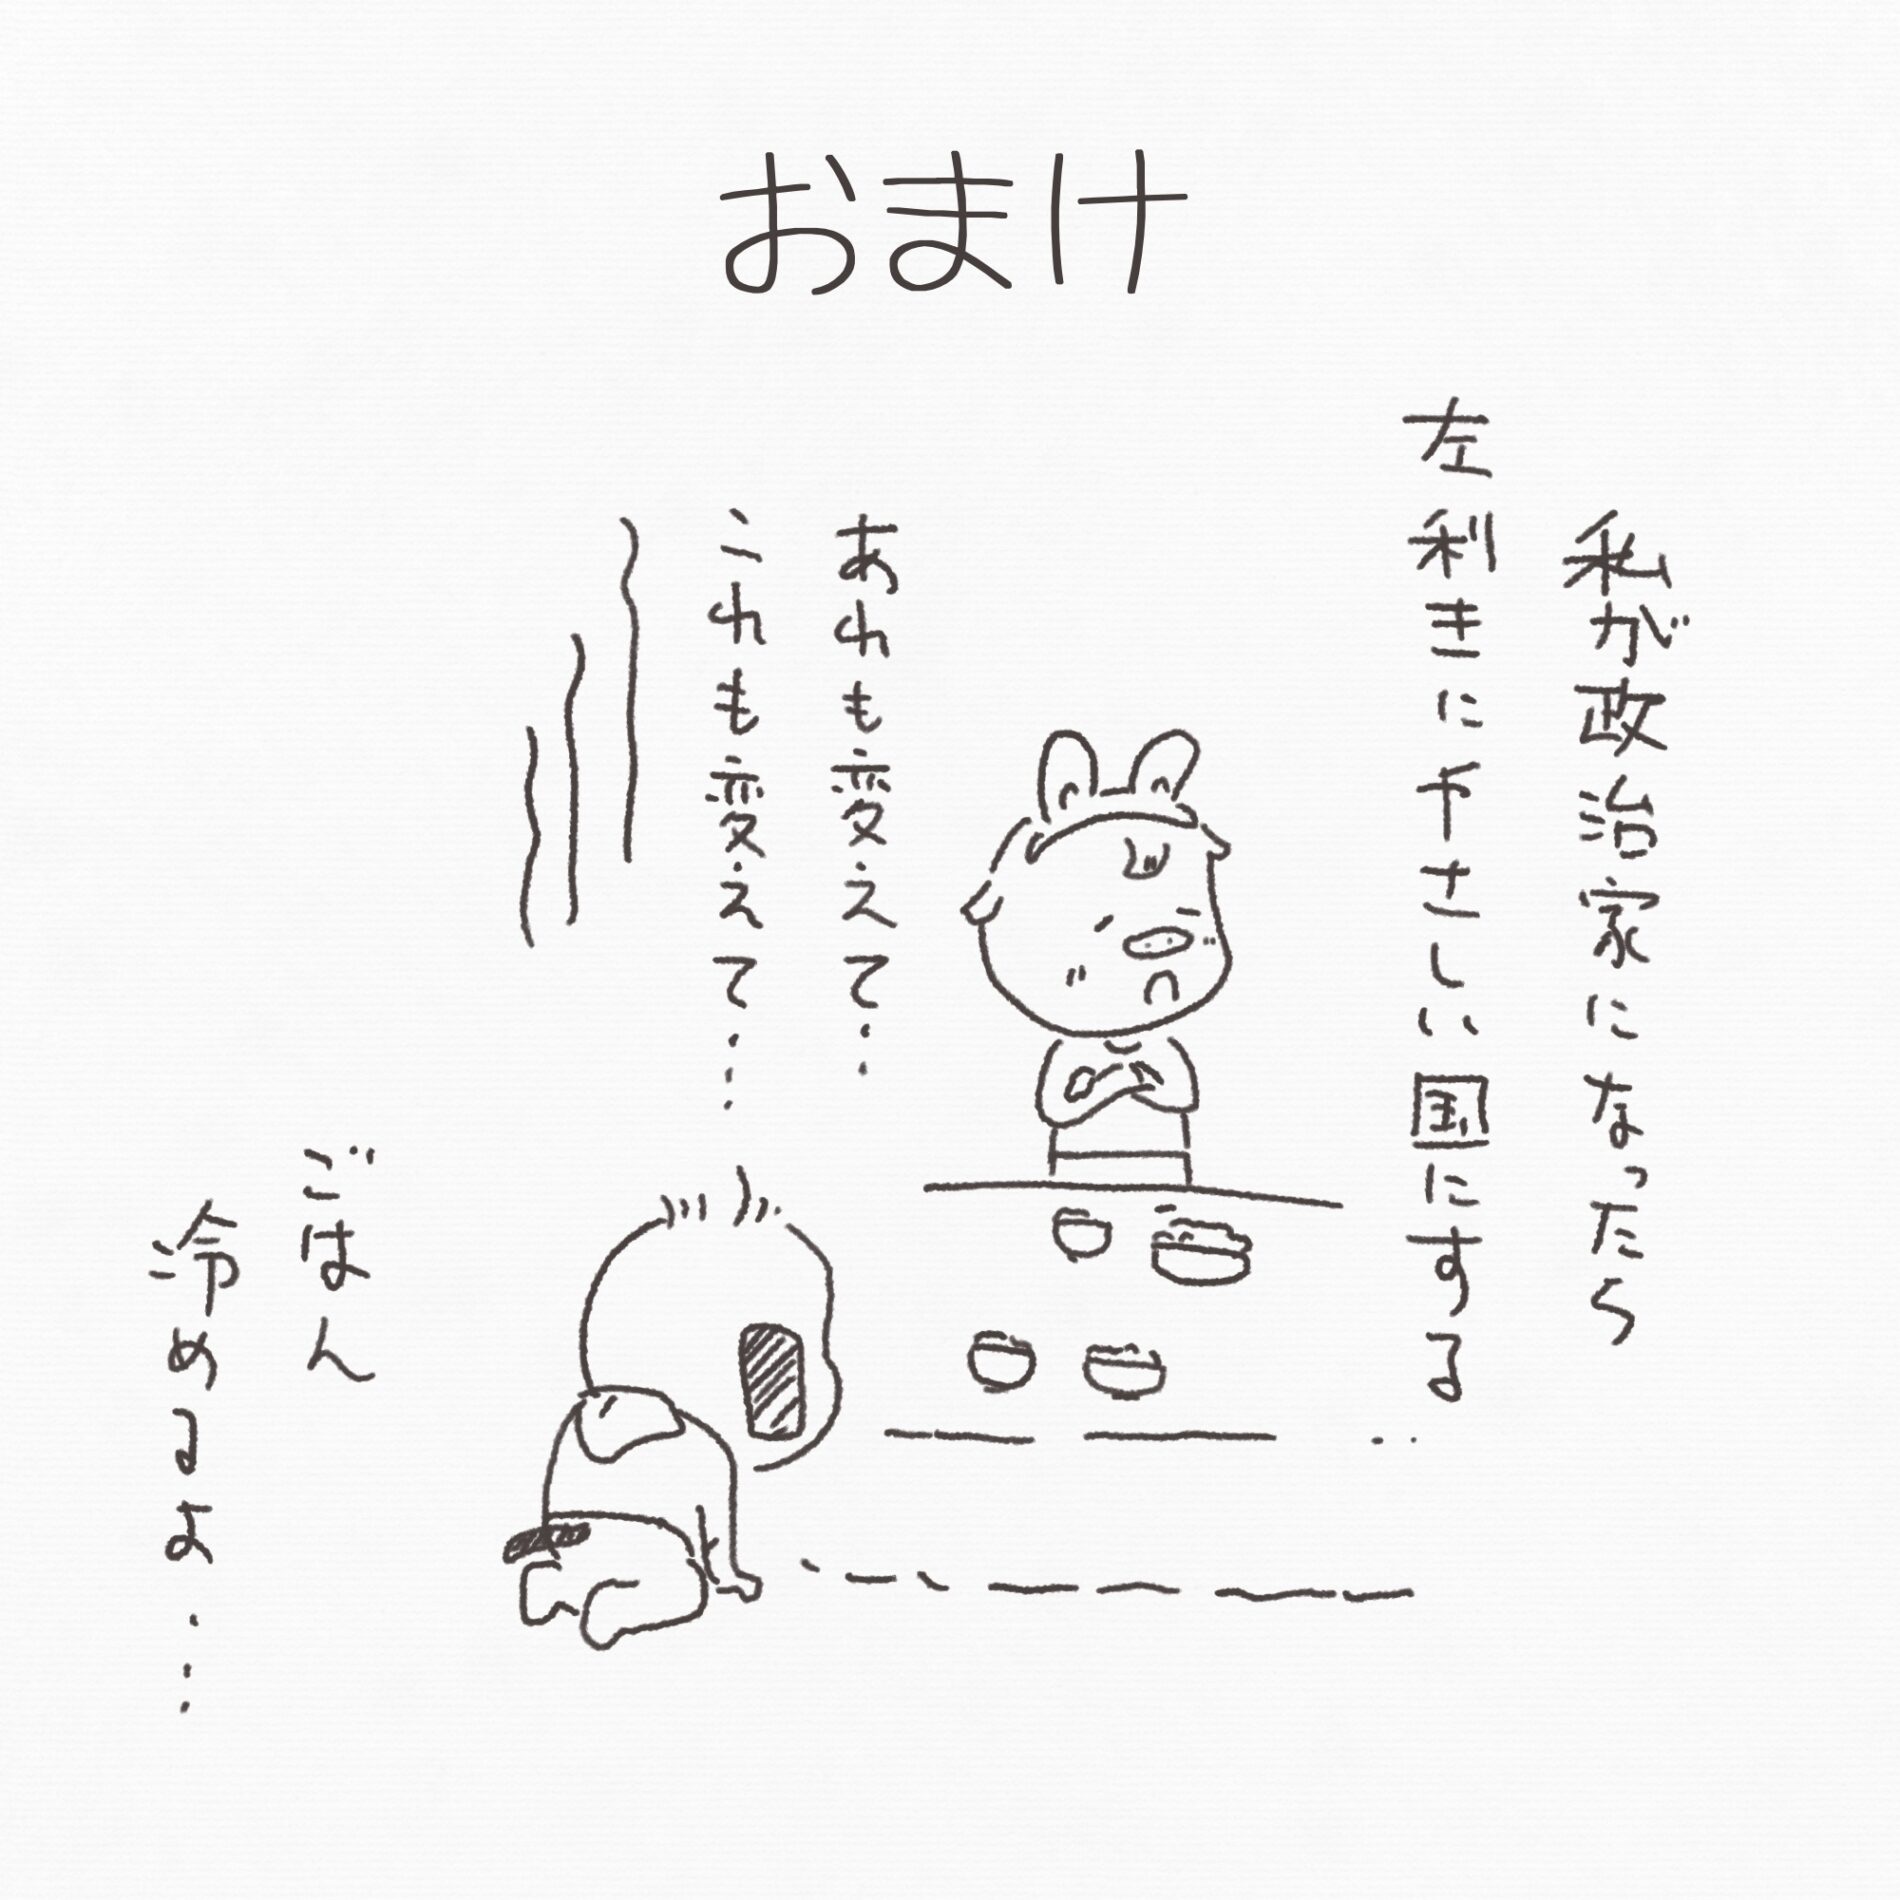 おまけ
私が政治家になったら
左利きに干さしい国にする
あれも変えて‥
これも変えて…
ごはん
冷めるよ…